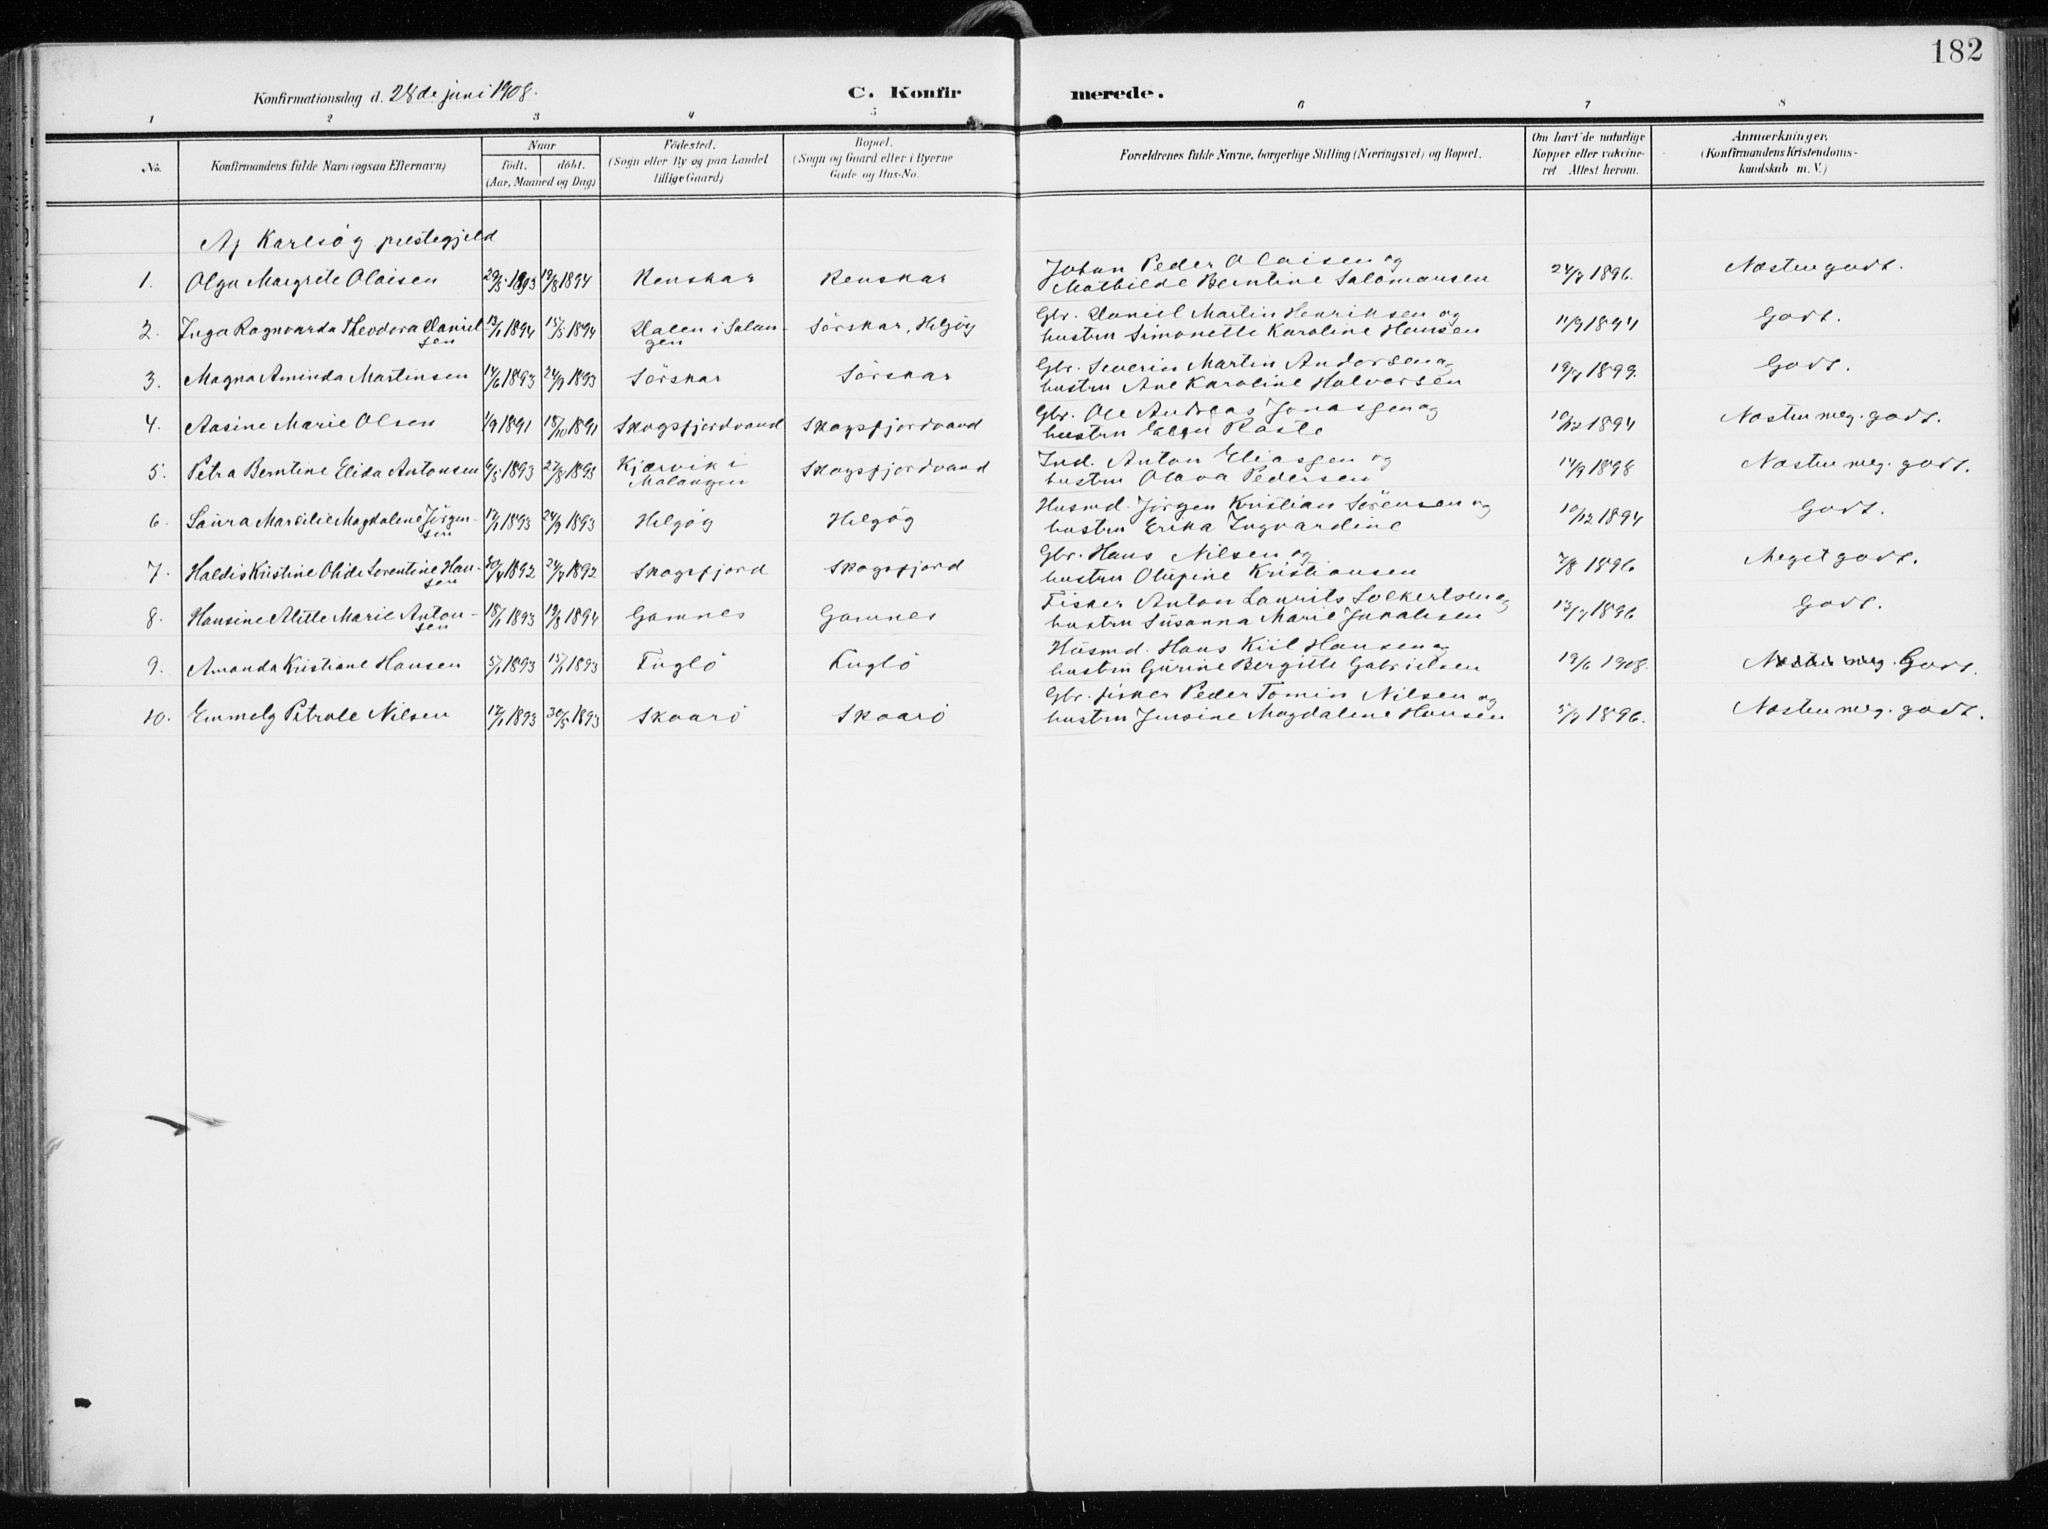 182
Konfirmationsdag d. 28de juni 1908.
C. Konfirmerede.
1 2 3 4 5 6 7 8
No.
Konfirmandens fulde Navn (ogsaa Efternavn)
Naar
født. døbt.
(Aar, Maaned og Dag)
Födested.
(Sogn eller By og paa Landet
tillige Gaard)
Bopæl.
(Sogn og Gaard eller i Byerne
Gade og Hus-No.
Forældrenes fulde Navne, borgerlige Stilling (Næringsvei) og Bopæl.
Om havt de naturlige
Kopper eller vakcine-
ret Attest herom.
Anmærkninger.
(Konfirmandens Kristendoms-
kundskab m. V.)
Af Karlsøy prestegjeld
1. Olga Margrete Olaisen 29/5 1893 19/8 1894 Renskar Renskar Johan Peder Olaisen og
Mathilde Berntine Salomonsen 24/7 1896. Næsten godt.
2. Inga Ragnvarda Theodora Daniel-
sen 13/1 1894 15/5 1894 Dalen i Salan-
gen Sörskar, Helgöy Gbr. Daniel Martin Henriksen og
hustru Simonette Karoline Hansen 11/9 1894 Godt.
3. Magna Aminda Martinsen 14/6 1893 24/9 1893 Sörskar Sörskar Gbr. Severin Martin Andersen og
hustru Ane Karoline Halversen 19/7 1899. Godt.
4. Aasine Marie Olsen 1/9 1891 18/10 1891 Skogsfjordvand Skogsfjordvand Gbr. Ole Andreas Jonassen og
hustru Raste 10/12 1894 Næsten meg. godt.
5. Petra Berntine Elida Antonsen 6/5 1893 27/8 1893 Kjærvik i
Malangen Skogsfjordvand Ind. Anton Eliassen og
hustru Olava Pedersen 14/9 1898 Næsten meg. godt.
6. Laura Marsilie Magdalene Jörgen-
sen 17/1 1893 24/9 1893 Helgöy Helgöy Husmd. Jörgen Kristian Sörensen og
hustru Erika Ingvardine 10/12 1894 Godt.
7. Haldis Kristine Olide Lorentine Han-
sen 30/4 1892 24/7 1892 Skogsfjord Skogsfjord Gbr. Hans Nilsen og
hustru Olufine Kristiansen 7/8 1896. Meget godt.
8. Hansine Alette Marie Anton-
sen 18/1 1893 19/8 1894 Gamnes Gamnes Fisker Anton Laurits Solkertsen og
hustru Susanna Marie Jakobsen 13/7 1896 Godt.
9. Amanda Kristiane Hansen 5/1 1893 15/1 1893 Fuglö Fuglö Husmd. Hans Kiil Hansen og
hustru Gurine Bergitte Gabrielsen 19/6 1908. Næsten meg. Godt.
10. Emmely Petrole Nilsen 17/1 1893 30/5 1893 Skaarö Skaarö Gbr. fisker Peder Tomin Nilsen og
hustru Jensine Magdalene Hansen 5/9 1896. Næsten meg. godt.